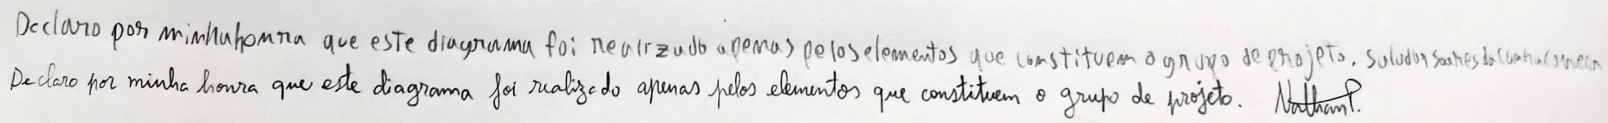 Declaro por minha honra que este diagrama foi realizado apenas pelos elementos que constituem o grupo de projeto.
Declaro por minha honra que este diagrama foi realizado apenas pelos elementos que constituem o grupo de projeto. Nathan P.